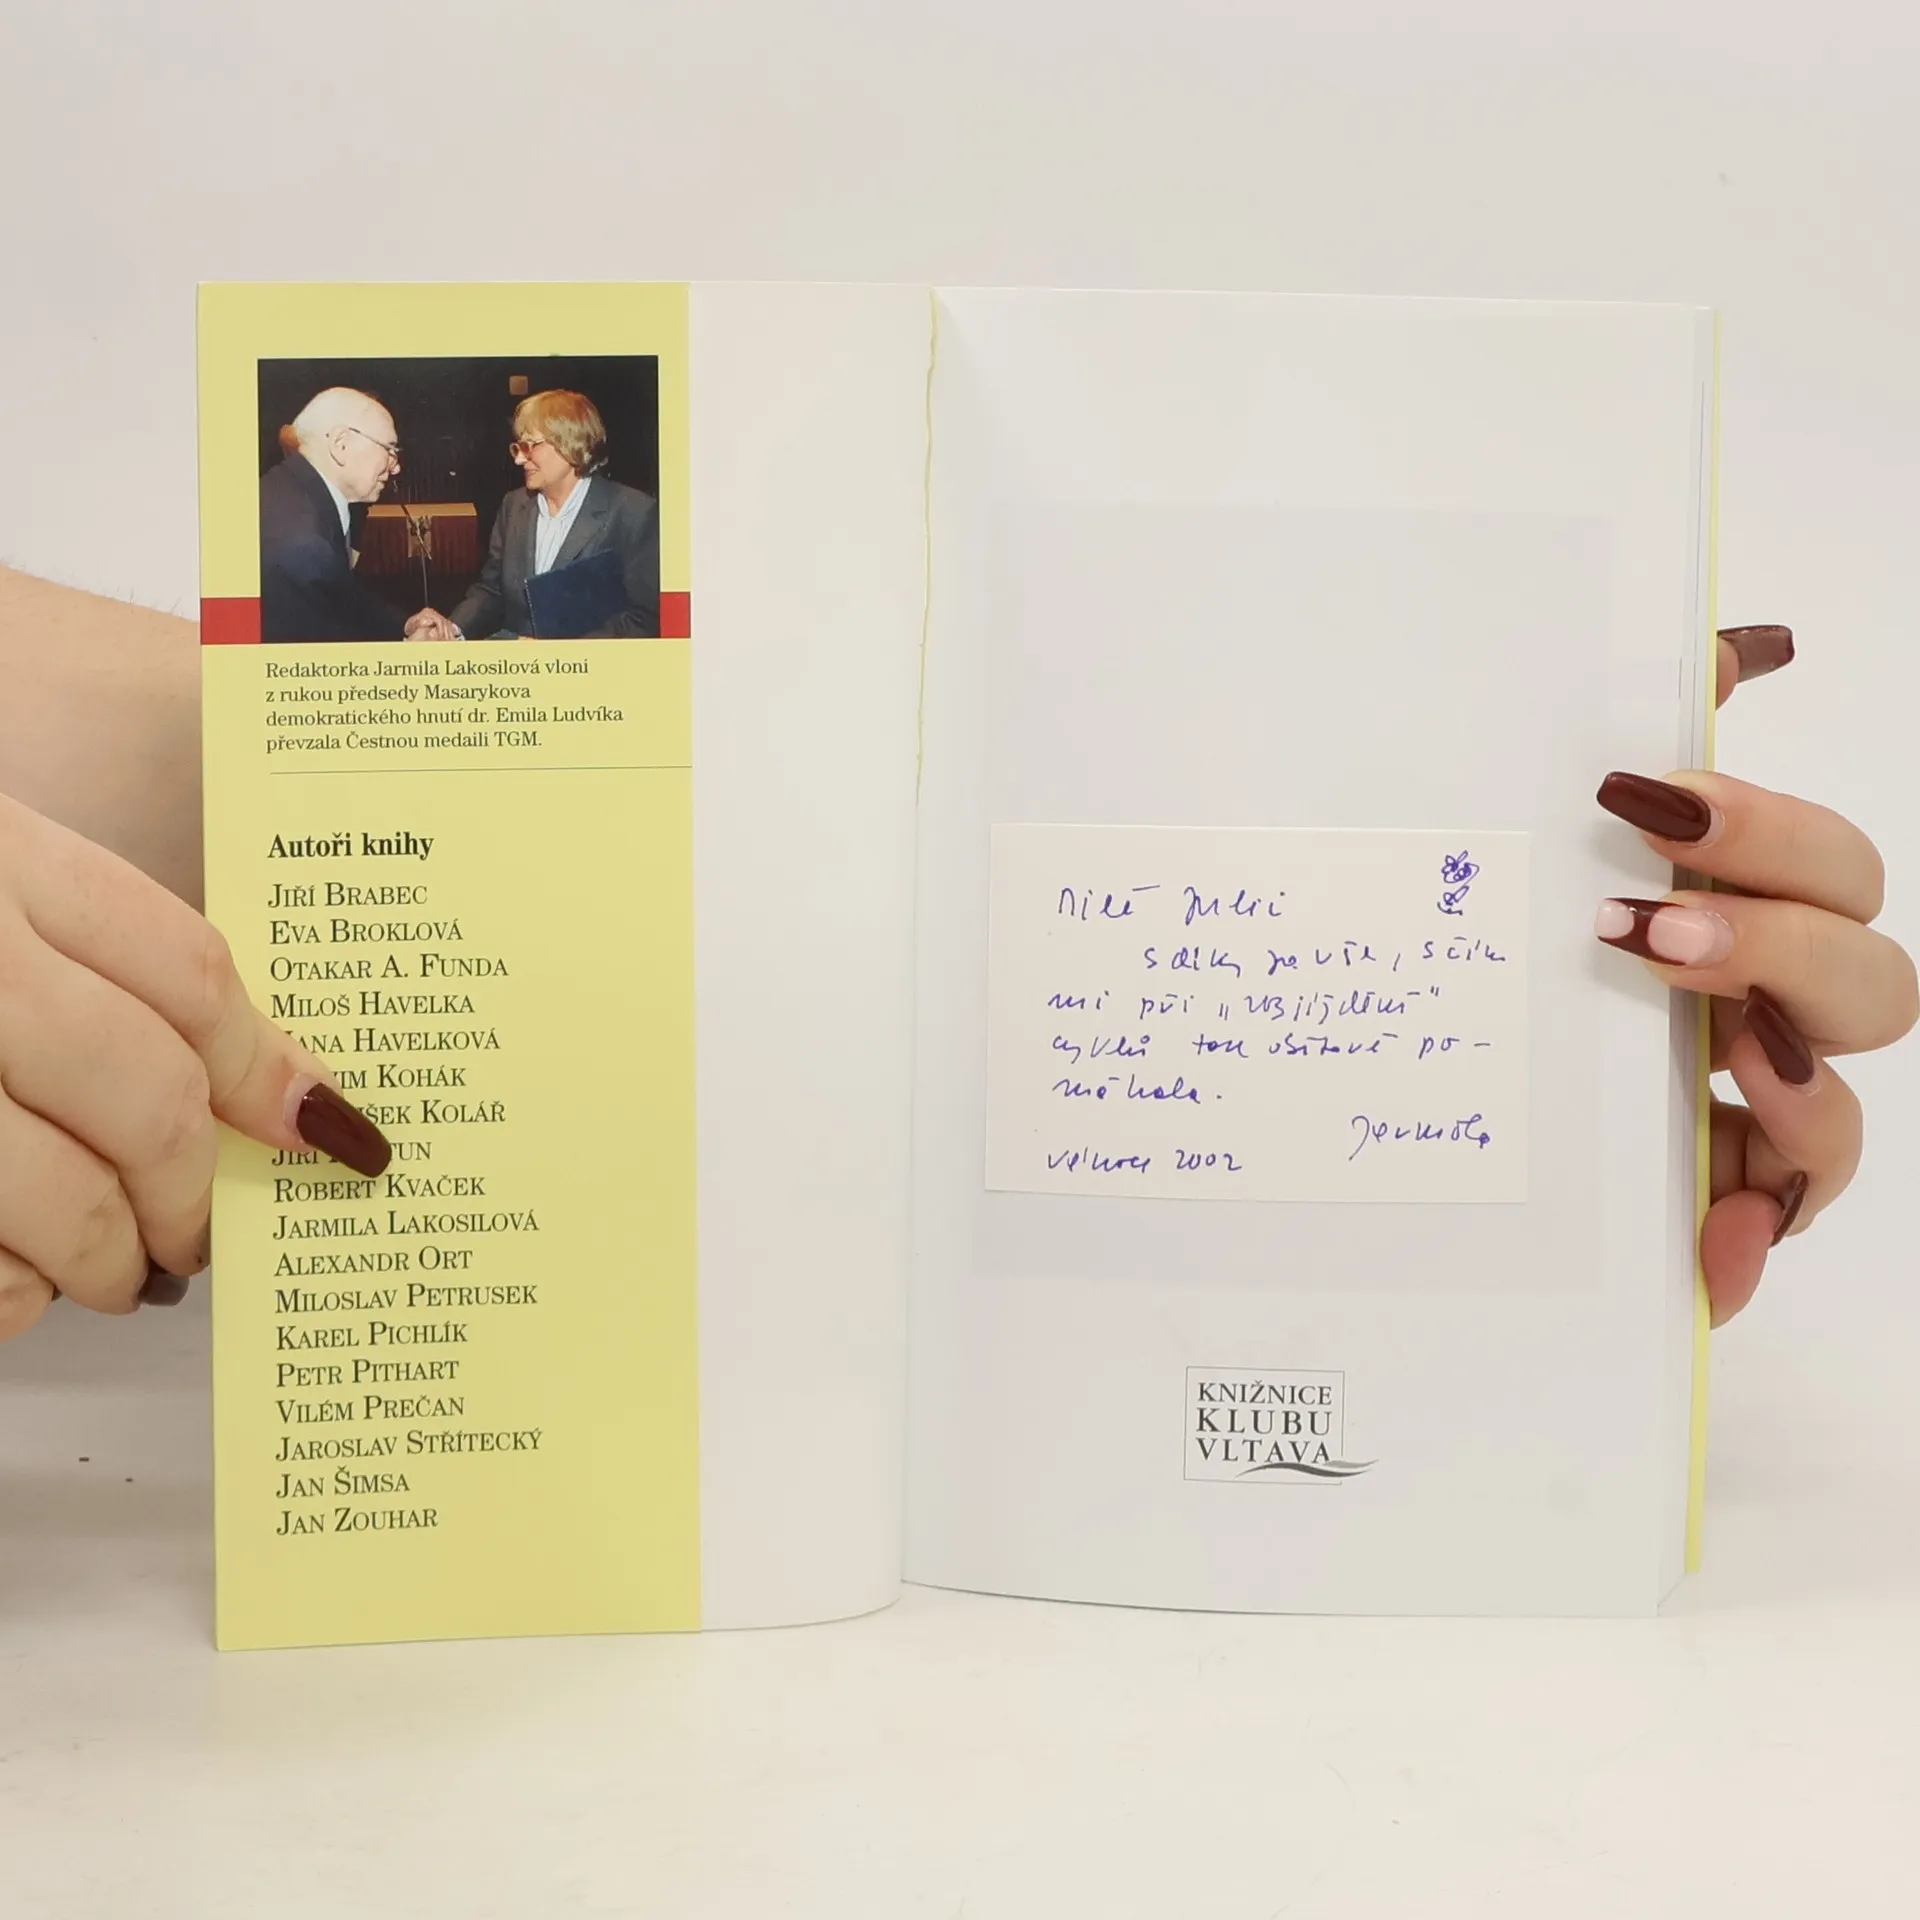 Redaktorka Jarmila Lakosilová vloni
z rukou předsedy Masarykova
demokratického hnutí dr. Emila Ludvíka
převzala Čestnou medaili TGM.
Autoři knihy
JIŘÍ BRABEC
EVA BROKLOVÁ
OTAKAR A. FUNDA
MILOŠ HAVELKA
HAVELKOVÁ
KOHÁK
KOLÁŘ
JIŘÍ
ROBERT KVAČEK
JARMILA LAKOSILOVÁ
ALEXANDR ORT
MILOSLAV PETRUSEK
KAREL PICHLÍK
PETR PITHART
VILÉM PREČAN
JAROSLAV STŘÍTECKÝ
JAN ŠIMSA
JAN ZOUHAR
Milé Julii
s díky za vše, s čím
mi při "rozjíždění"
cyklů tak obětavě po-
máhala.
Jarmila
Vánoce 2002
KNIŽNICE
KLUBU
VLTAVA